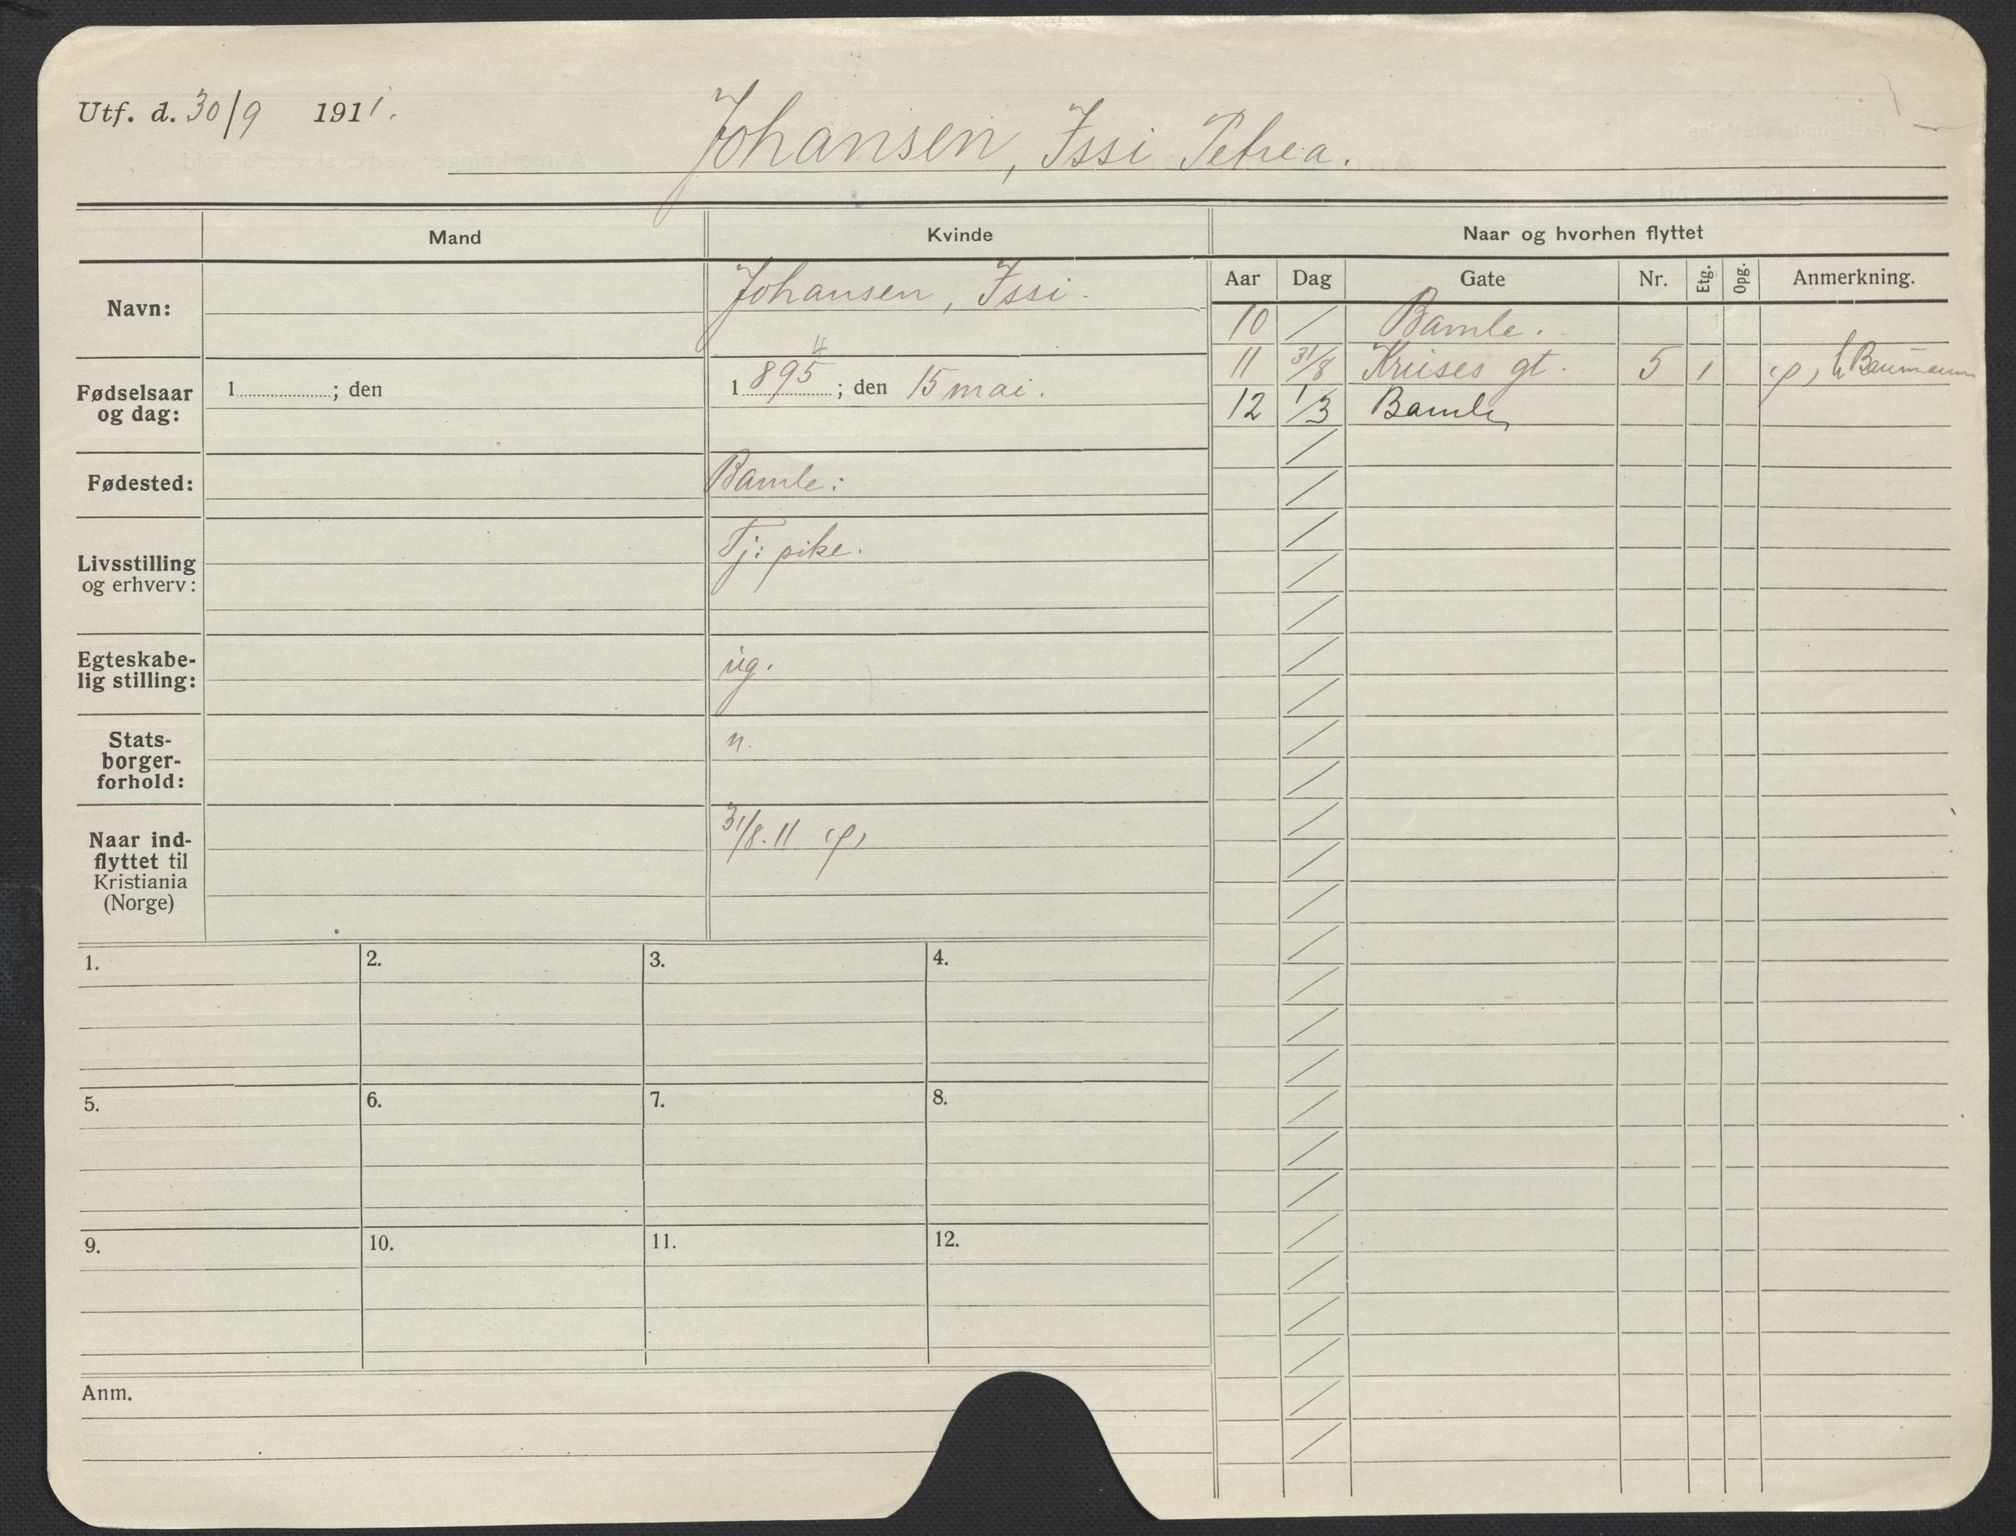 Utf. d. 30/9 1911.
Johansen, Issi Petrea.
Mand
Kvinde
Naar og hvorhen flyttet
Aar Dag Gate Nr. Etg. Opg. Anmerkning.
Navn:
Johansen, Issi.
10 / Bamle.
11 31/8 Kruses gt. 5 1 h Baumann
12 1/3 Bamle
Fødselsaar
og dag:
1 ; den
4
1 895 ; den 15 mai.
Fødested:
Bamle:
Livsstilling
og erhverv:
Tj: pike.
Egteskabe-
lig stilling:
ug.
Stats-
borger-
forhold:
n.
Naar ind-
flyttet til
Kristiania
(Norge)
31/8. 11
1. 2. 3. 4.
5. 6. 7. 8.
9. 10. 11. 12.
Anm.